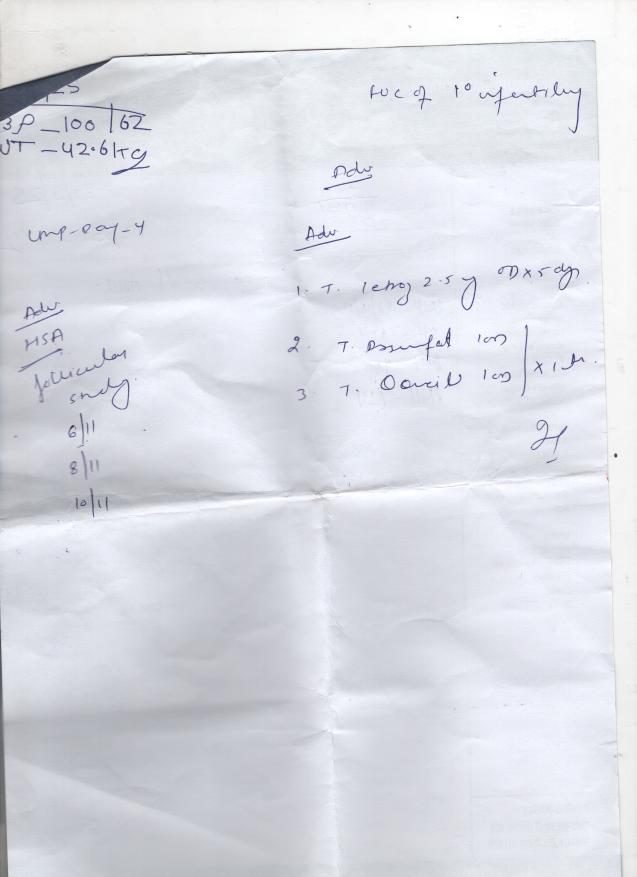 BP - 100/62
WT - 42.6 kg
FUC of 1° infertility
Adv
LMP - Day - 4
Adv
1. T. letroz 2.5 mg OD x 5 dys
2. T. 1 OD
3. T. 1 OD
x 1 
Adv
HSA
follicular
study
6/11
8/11
10/11